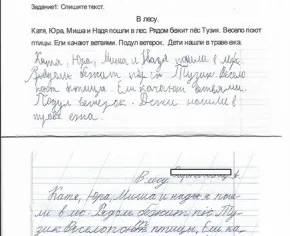 Задание1: Спишите текст.
В лесу.
Катя, Юра, Миша и Надя пошли в лес. Рядом бежит пёс Тузик. Весело поют
птицы. Ели качают ветвями. Подул ветерок. Дети нашли в траве ежа
Катя, Юра, Миша и Надя пошли в
бежат Тузик Весело
птица. Ели качают ветвями.
Подул ветерок. Дети
траве ежа.
В лесу
Катя, Юра, Миша и надя я пош-
ли в ле. Рядом бежит пёс Ту-
зик Веселопоют птицы, Ели ка-